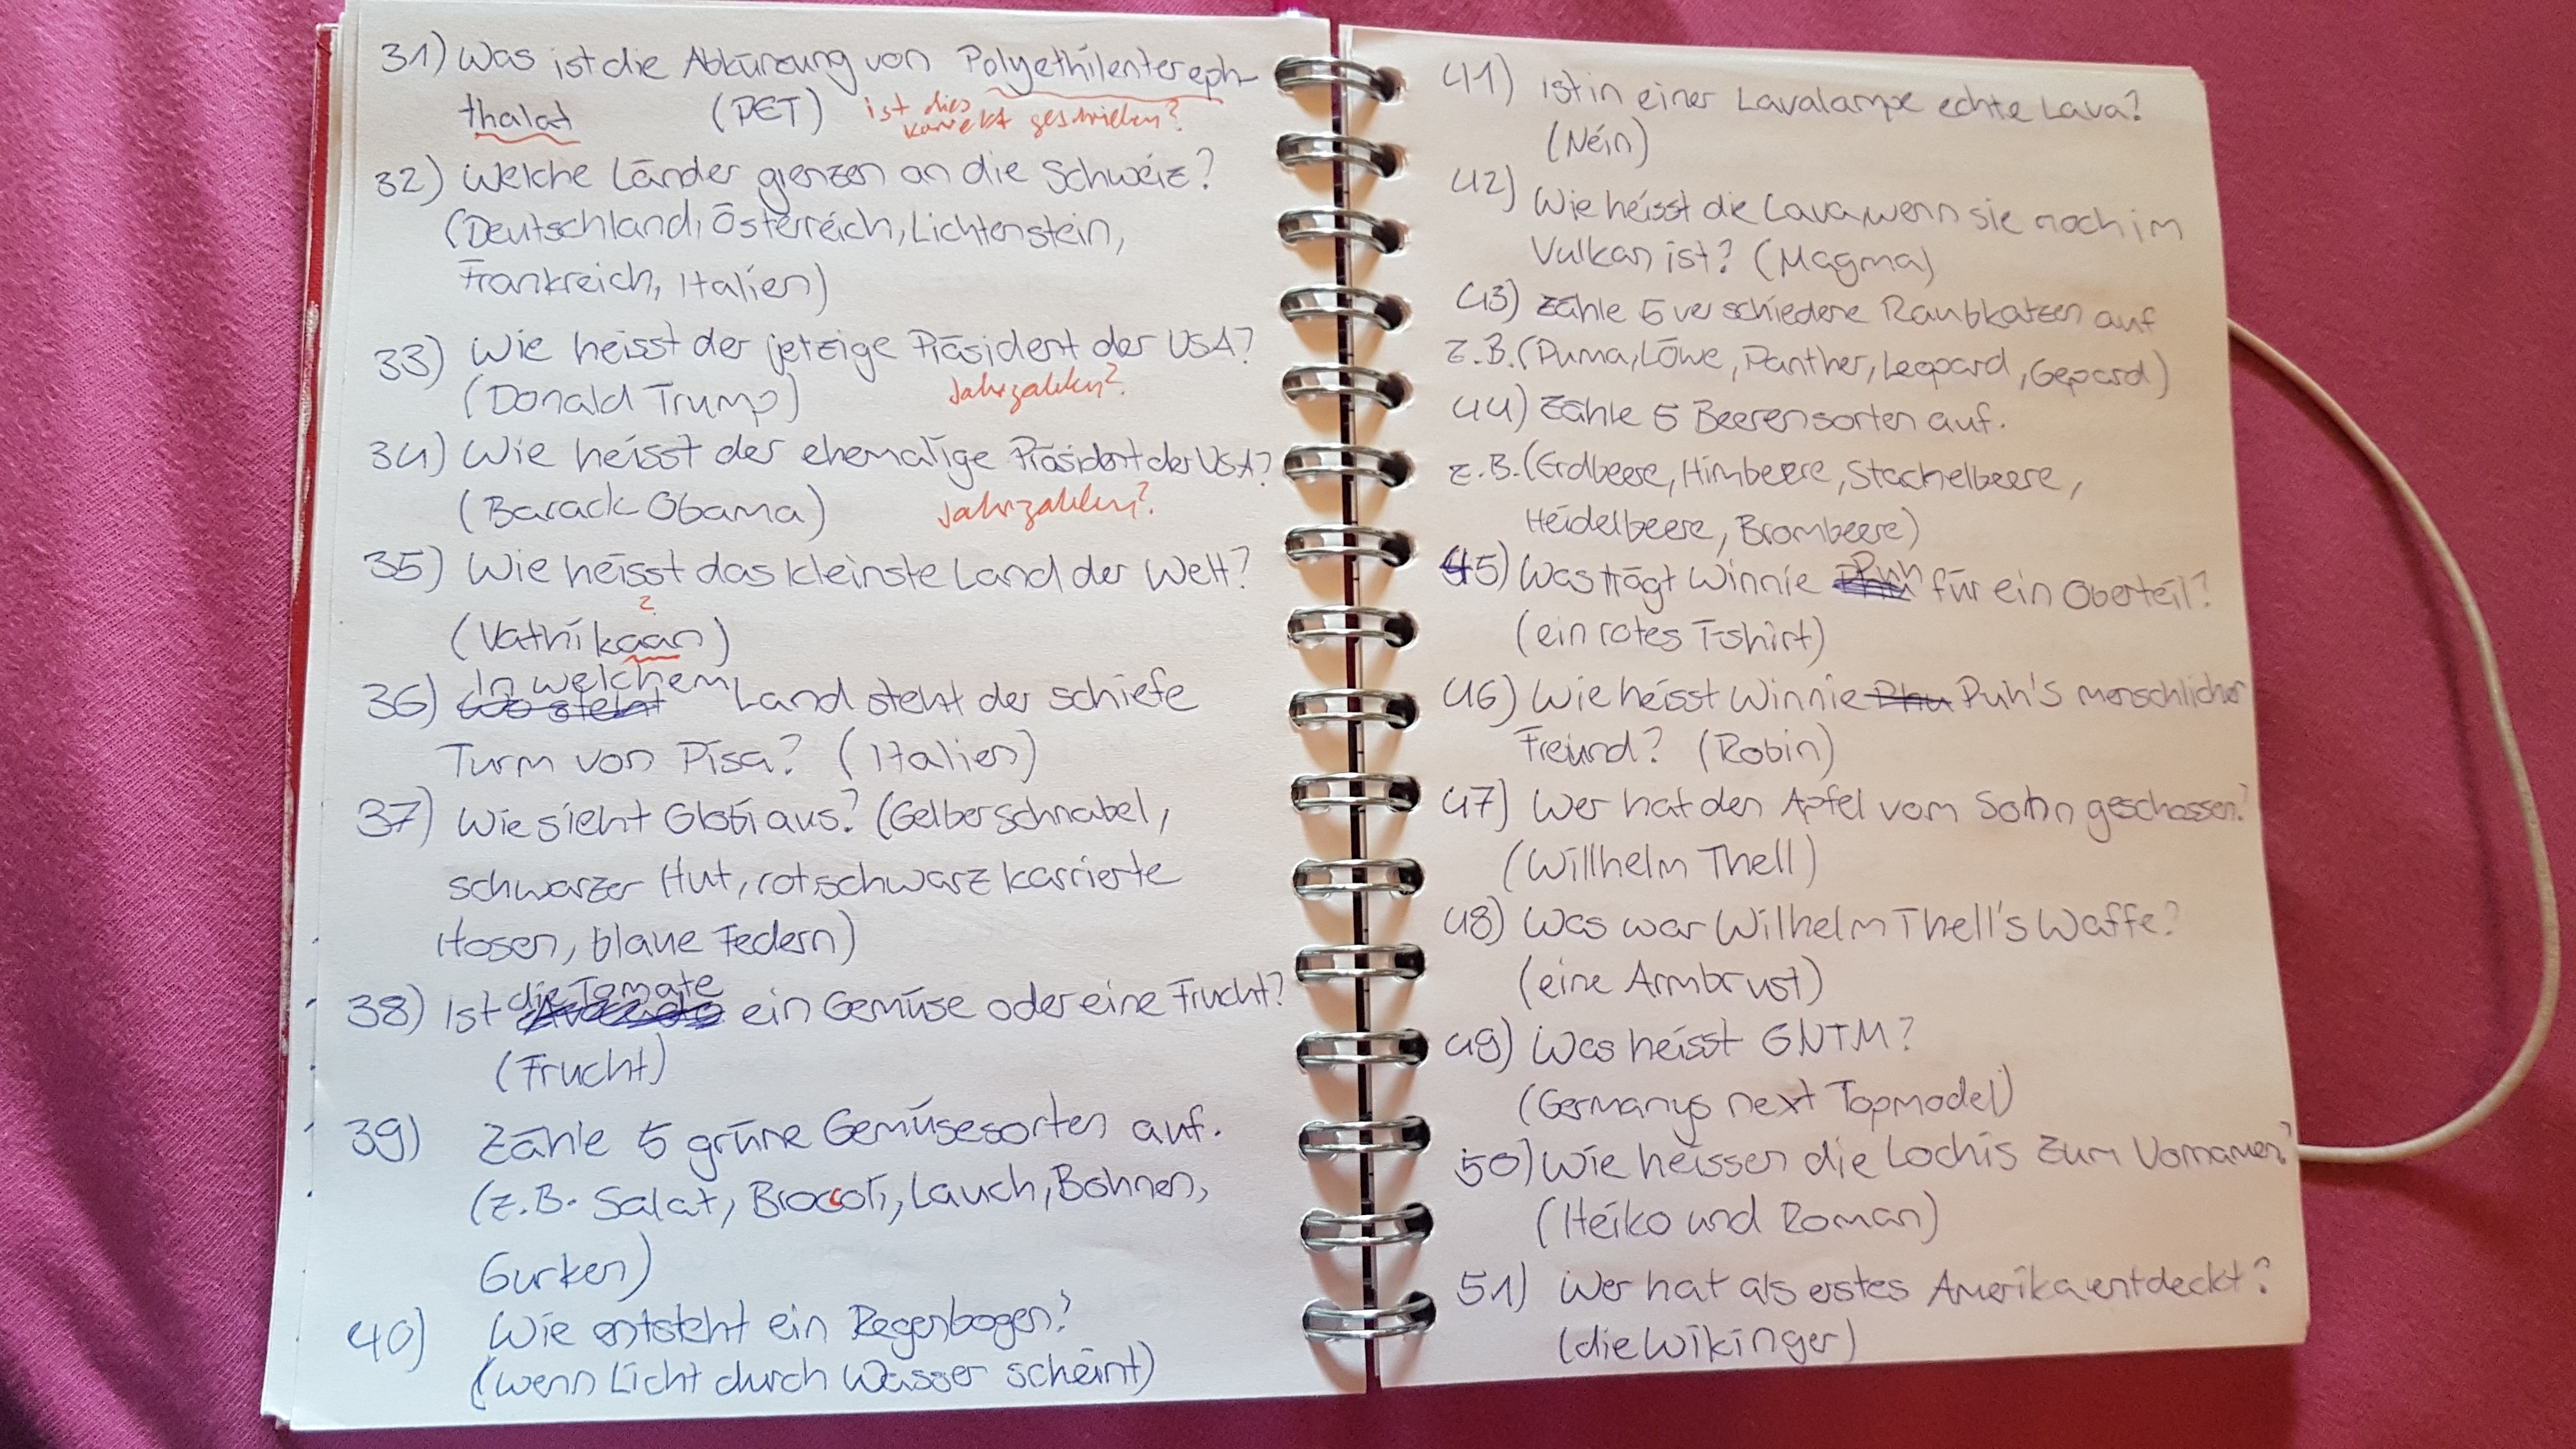 31) Was ist die Abkürzung von Polyethilentereph-
thalat (PET) ist dies
korrekt geschrieben?
32) Welche Länder grenzen an die Schweiz?
(Deutschland, Österreich, Lichtenstein,
Frankreich, Italien)
33) Wie heisst der jetzige Präsident der USA?
(Donald Trump) Jahrzahlen?
34) Wie heisst der ehemalige Präsident der USA?
(Barack Obama) Jahrzahlen?
35) Wie heisst das kleinste Land der Welt?
?
(Vathikaan)
In welchem
36) Wo steht Land steht der schiefe
Turm von Pisa? (Italien)
37) Wie sieht Globi aus? (Gelber schnabel,
schwarzer Hut, rot schwarz karrierte
Hosen, blaue Federn)
die Tomate
38) Ist ein Gemüse oder eine Frucht?
(Frucht)
39) Zähle 5 grüne Gemüsesorten auf.
(z.B. Salat, Broccoli, Lauch, Bohnen,
Gurken)
40) Wie entsteht ein Regenbogen?
(wenn Licht durch Wasser scheint)
41) Ist in einer Lavalampe echte Lava?
(Nein)
42) Wie heisst die Lava, wenn sie noch im
Vulkan ist? (Magma)
43) Zähle 5 verschiedene Raubkatzen auf
z.B. (Puma, Löwe, Panther, Leopard, Gepard)
44) Zähle 5 Beerensorten auf.
z.B. (Erdbeere, Himbeere, Stachelbeere,
Heidelbeere, Brombeere)
45) Was trägt Winnie Puh für ein Oberteil?
(ein rotes T-shirt)
46) Wie heisst Winnie Phu Puh's menschlicher
Freund? (Robin)
47) Wer hat den Apfel vom Sohn geschossen?
(Willhelm Thell)
48) Was war Wilhelm Thell's Waffe?
(eine Armbrust)
49) Was heisst GNTM?
(Germanys next Topmodel)
50) Wie heissen die Lochis zum Vornamen?
(Heiko und Roman)
51) Wer hat als erstes Amerika entdeckt?
(die Wikinger)